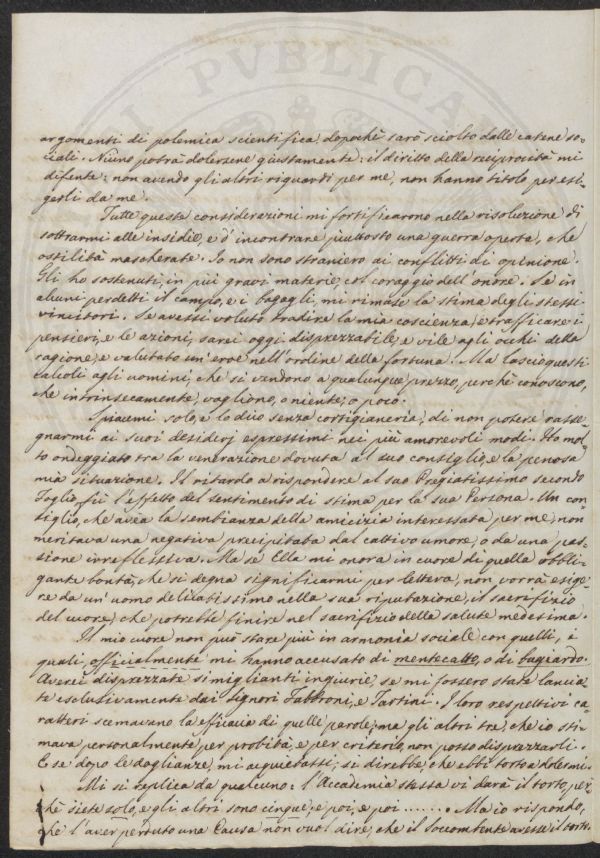 argomenti di polemica scientifica, dopochè sarò sciolto dalle catene so-
ciali. Niuno potrà dolersene giustamente: il diritto della reciprocità mi
difende: non avendo gli altri riguardi per me, non hanno titolo per esi-
gerli da me.
Tutte queste considerazioni mi fortificarono nella risoluzione di
sottrarmi alle insidie, e d'incontrare piuttosto una guerra aperta, che
ostilità mascherate. Io non sono straniero ai conflitti di opinione.
Gli ho sostenuti, in più gravi materie, col coraggio dell'onore. Se in
alcuni perdetti il campo, e i bagagli, mi rimase la stima degli stessi
vincitori. Se avessi voluto tradire la mia coscienza, e trafficare i
pensieri, e le azioni, sarei oggi disprezzabile, e vile agli occhi della
ragione, e valutato un'eroe nell'ordine della fortuna. Ma lascio questi
calcoli agli uomini, che si vendono a qualunque prezzo, perchè conoscono,
che intrinsecamente vagliono, o niente, o poco.
Spiacemi solo, e lo dico senza cortigianeria, di non potere rasse-
gnarmi ai suoi desiderj espressimi nei più amorevoli modi. Ho mol-
to ondeggiato tra la venerazione dovuta al suo consiglio, e la penosa
mia situazione. Il ritardo a rispondere al suo Pregiatissimo secondo
Foglio, fù l'effetto del sentimento di stima per la sua Persona. Un con-
siglio, che avea la sembianza della amicizia interessata per me, non
meritava una negativa precipitata dal cattivo umore, o da una pas-
sione irreflessiva. Ma se Ella mi onora in cuore di quella obbli-
gante bontà, che si degna significarmi per lettera, non vorrà esige-
re da un'uomo delicatissimo nella sua riputazione, il sacrifizio
del cuore, che potrebbe finire nel sacrifizio della salute medesima.
Il mio cuore non può stare più in armonia sociale con quelli, i
quali, officialmente mi hanno accusato di mentecatto, o di bugiardo.
Averei disprezzate simiglianti ingiurie, se mi fossero state lancia-
te esclusivamente dai Signori Fabbroni, e Tartini. I loro respettivi ca-
ratteri scemavano l'efficacia di quelle parole; ma gli altri tre, che io sti-
mava personalmente per probità, e per criterio, non posso disprezzarli.
E se dopo le doglianze, mi acquietassi, si direbbe, che ebbi torto a dolermi.
Mi si replica da qualcuno: l'Accademia stessa vi darà il torto, per-
chè siete solo, e gli altri sono cinque, e poi, e poi....... Ma io rispondo,
che l'aver perduto una Causa non vuol dire, che il soccombente avesse il torto.